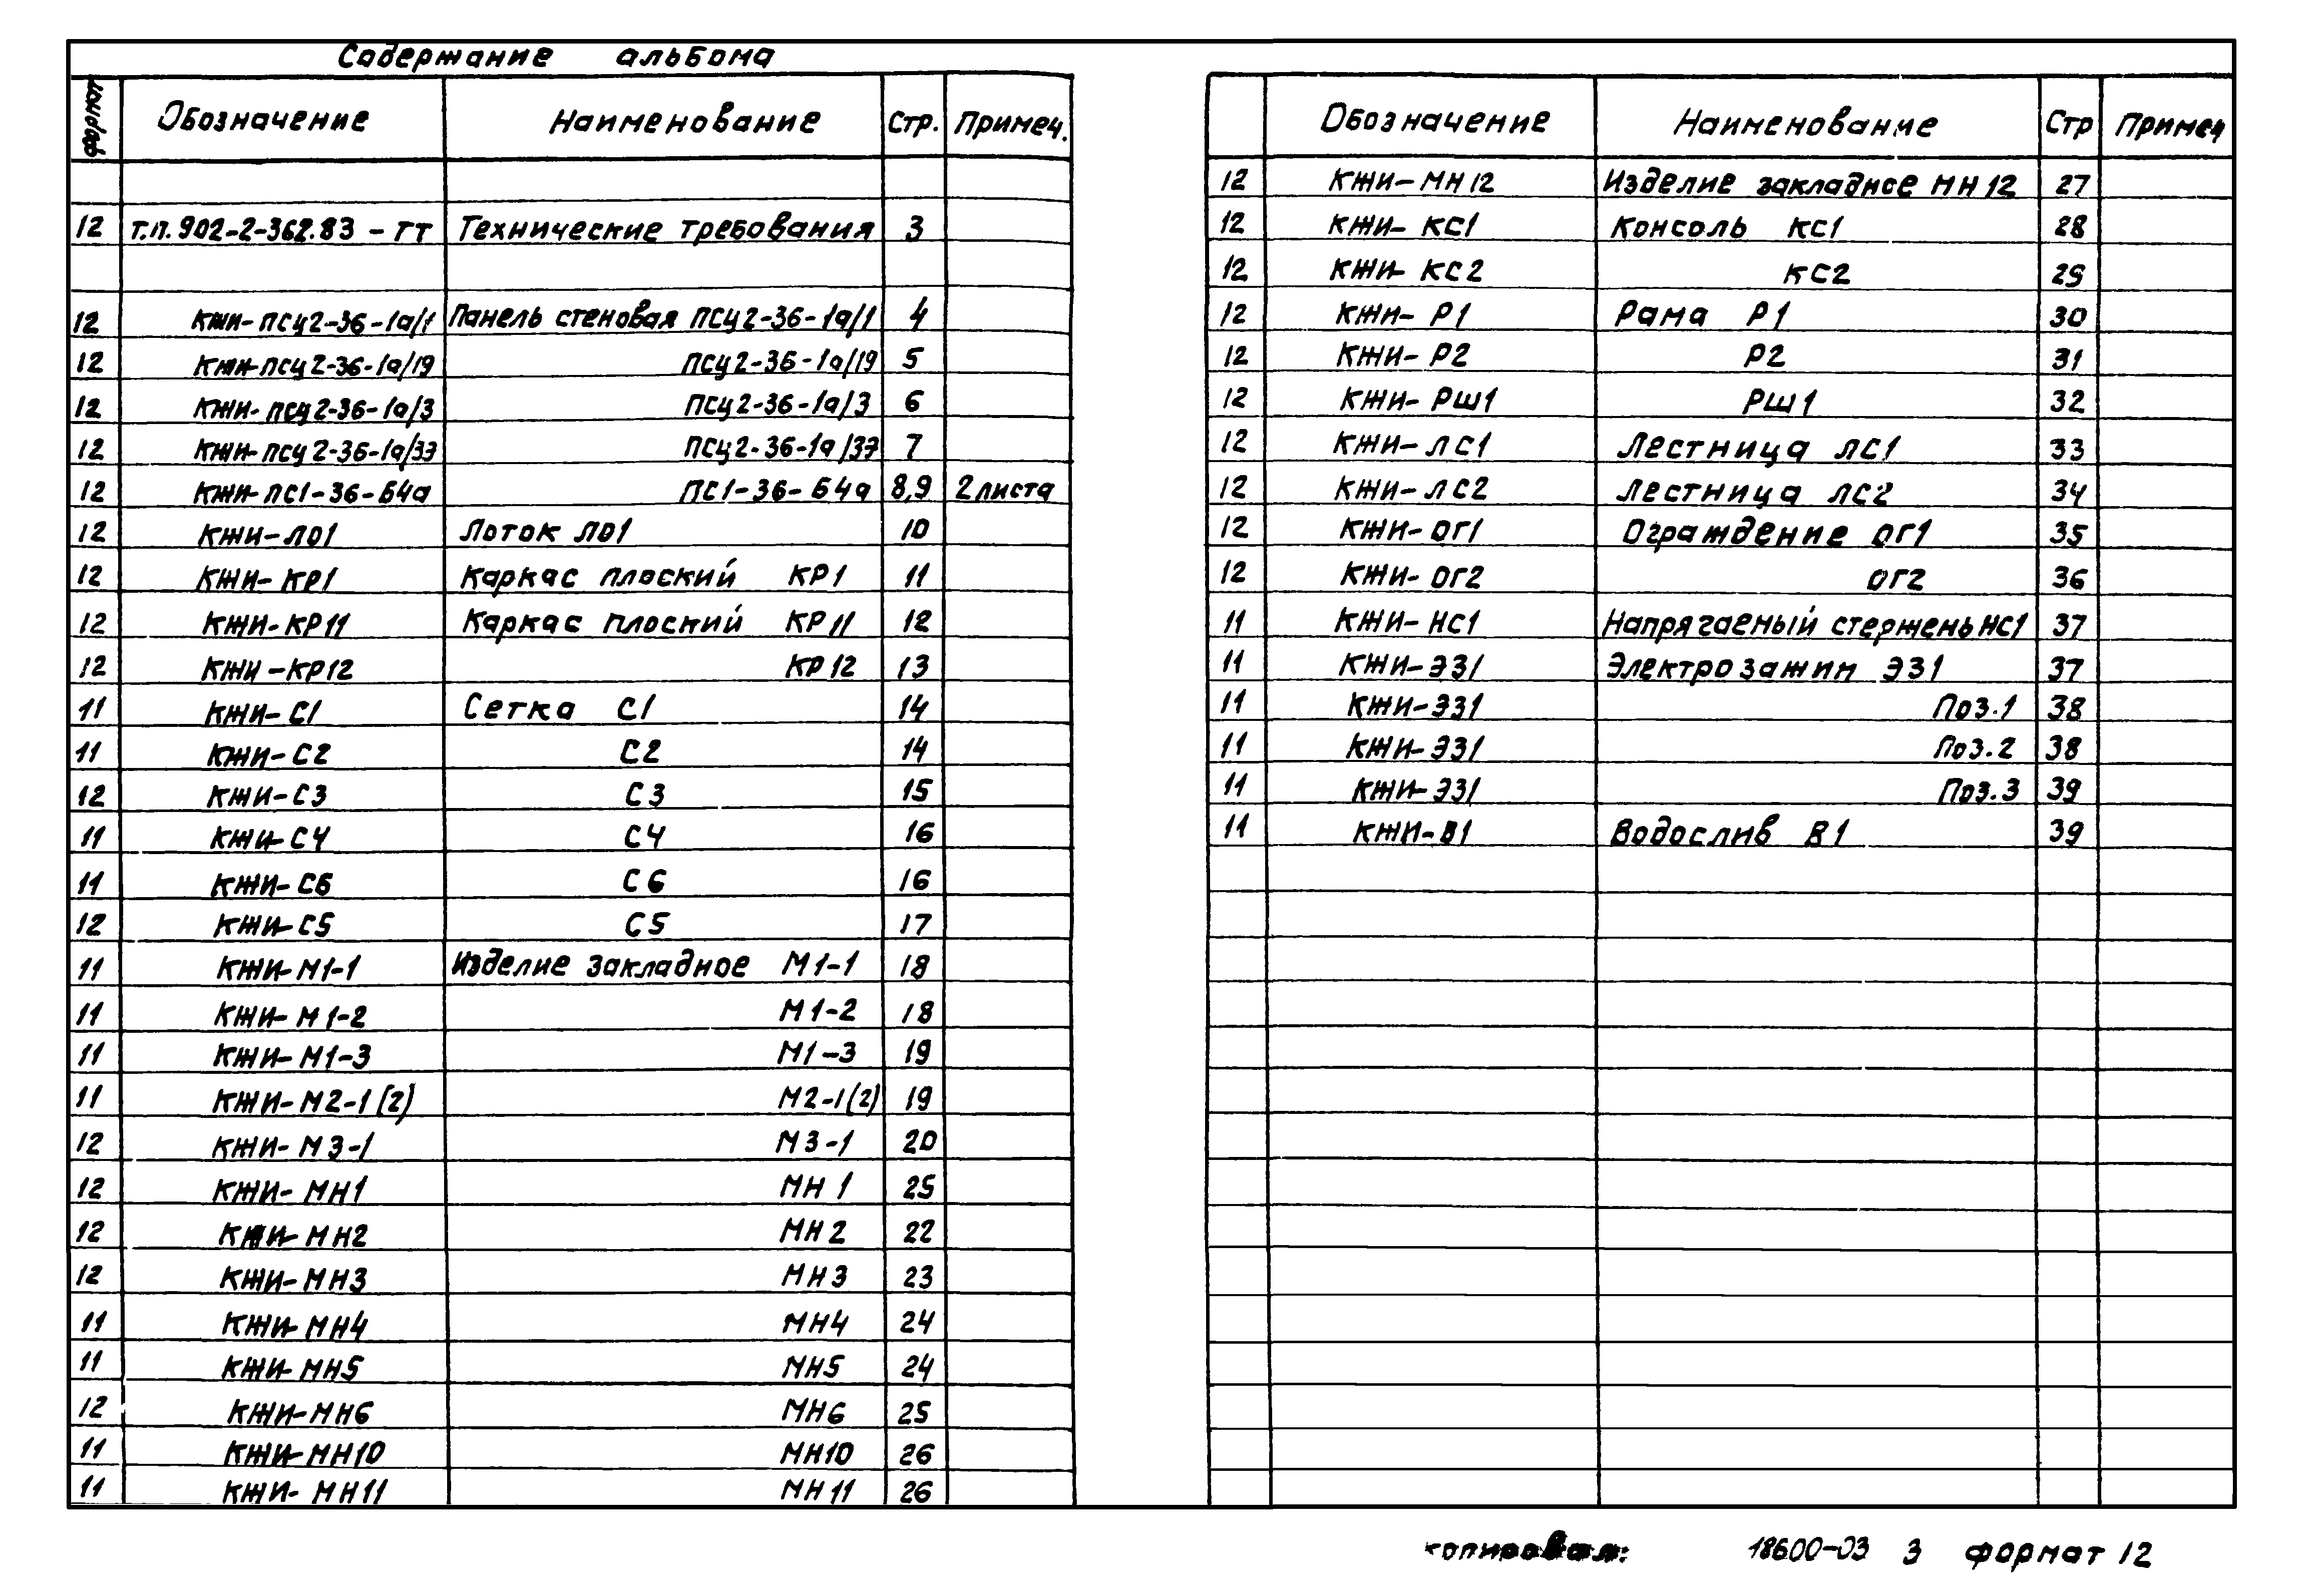 Содержание альбома
формат Обозначение Наименование Стр. Примеч.
12 т.п. 902-2-362.83 - ТТ Технические требования 3
12 КЖИ-ПСЦ2-36-1а/1 Панель стеновая ПСЦ2-36-1а/1 4
12 КЖИ-ПСЦ2-36-1а/19 ПСЦ2-36-1а/19 5
12 КЖИ-ПСЦ2-36-1а/3 ПСЦ2-36-1а/3 6
12 КЖИ-ПСЦ2-36-1а/37 ПСЦ2-36-1а/37 7
12 КЖИ-ПС1-36-Б4а ПС1-36-Б4а 8,9 2 листа
12 КЖИ-ЛО1 Лоток ЛО1 10
12 КЖИ-КР1 Каркас плоский КР1 11
12 КЖИ-КР11 Каркас плоский КР11 12
12 КЖИ-КР12 КР12 13
11 КЖИ-С1 Сетка С1 14
11 КЖИ-С2 С2 14
12 КЖИ-С3 С3 15
11 КЖИ-С4 С4 16
11 КЖИ-С6 С6 16
12 КЖИ-С5 С5 17
11 КЖИ-М1-1 Изделие закладное М1-1 18
11 КЖИ-М1-2 М1-2 18
11 КЖИ-М1-3 М1-3 19
11 КЖИ-М2-1(2) М2-1(2) 19
12 КЖИ-М3-1 М3-1 20
12 КЖИ-МН1 МН1 25
12 КЖИ-МН2 МН2 22
12 КЖИ-МН3 МН3 23
11 КЖИ-МН4 МН4 24
11 КЖИ-МН5 МН5 24
12 КЖИ-МН6 МН6 25
11 КЖИ-МН10 МН10 26
11 КЖИ-МН11 МН11 26
Обозначение Наименование Стр Примеч
12 КЖИ-МН12 Изделие закладное МН12 27
12 КЖИ-КС1 Консоль КС1 28
12 КЖИ-КС2 КС2 29
12 КЖИ-Р1 Рама Р1 30
12 КЖИ-Р2 Р2 31
12 КЖИ-РШ1 РШ1 32
12 КЖИ-ЛС1 Лестница ЛС1 33
12 КЖИ-ЛС2 Лестница ЛС2 34
12 КЖИ-ОГ1 Ограждение ОГ1 35
12 КЖИ-ОГ2 ОГ2 36
11 КЖИ-НС1 Напрягаемый стержень НС1 37
11 КЖИ-ЭЗ1 Электрозажим ЭЗ1 37
11 КЖИ-ЭЗ1 Поз.1 38
11 КЖИ-ЭЗ1 Поз.2 38
11 КЖИ-ЭЗ1 Поз.3 39
11 КЖИ-В1 Водослив В1 39
копировал: 18600-03 3 формат 12